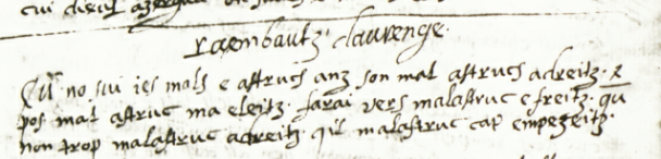 cui dient
raembautz daurenge.
Qu no sui ies mals e astrucs anz son mal astrucs adreitz. &
pos mal astruc ma eleitz. farai vers malastruc e freitz. qu
non trop malastruc adreitz. qil malastruc cap empezeitz.